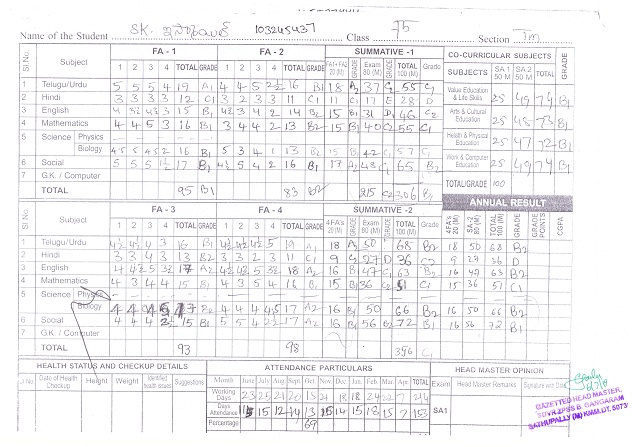 Name of the Student SK. ఇస్మాయిల్ 103245437 Class 7th Section Tm
FA - 1 FA - 2 SUMMATIVE -1 CO-CURRICULAR SUBJECTS
Sl.No. Subject 1 2 3 4 TOTAL GRADE 1 2 3 4 TOTAL GRADE FA1+FA2 20 (M) GRADE Exam 80 (M) GRADE TOTAL 100 (M) Grade SUBJECTS SA 1 50 M SA 2 50 M TOTAL GRADE
1 Telugu/Urdu 5 5 5 4 19 A1 4 4 5 2½ 16 B1 18 A2 37 C2 55 C1
Value Education & Life Skills 25 49 74 B1
2 Hindi 3 3 3 3 12 C1 3 2 3 3 11 C1 11 C1 17 E 28 D
3 English 15 B1 14 B2 15 B1 31 D 46 C2
Arts & Cultural Education 25 48 73 B1
4 Mathematics 4 4 5 3 16 B1 3 4 4 2 13 B2 15 B1 40 C2 55 C1
5 Science Physics
Health & Physical Education 25 47 72 B1
Biology 16 B1 5 3 4 1 13 B2 15 B1 42 C1 57 C1
6 Social 5 5 5 17 B1 4½ 5 4 2 16 B1 17 A2 48 C1 65 B2
Work & Computer Education 25 49 74 B1
7 G.K. / Computer
TOTAL 95 B1 83 B2 215 C2 306 TOTAL/GRADE 100
ANNUAL RESULT
FA - 3 FA - 4 SUMMATIVE -2
Sl.No. Subject 1 2 3 4 TOTAL GRADE 1 2 3 4 TOTAL GRADE 4FA's 20 (M) GRADE Exam 80 (M) GRADE TOTAL 100 (M) Grade 4FA's 20 (M) SA-2 80 (M) TOTAL 100 (M) GRADE GRADE POINTS CGPA
1 Telugu/Urdu 4½ 4½ 4 3 16 B1 4½ 4½ 5 19 A1 18 A2 50 68 B2 18 50 68 B2
2 Hindi 3 3 4 3 13 B2 3 3 2 3 11 C1 9 C2 27 D 36 C2 9 27 36 D
3 English 17 A2 18 A2 16 B1 47 C1 63 B2 16 47 63 B2
4 Mathematics 4 3 4 4 15 B1 4 3 5 4 16 B1 15 B1 36 C2 51 C1 15 36 51 C1
5 Science Physics
Biology 17 B2 4 4 4 5 17 A2 16 B1 50 66 B2 16 50 66 B2
6 Social 4 4 4 15 B1 5 5 4 17 A2 16 B1 56 B2 72 B1 16 56 72 B1
7 G.K. / Computer
TOTAL 93 98 356 C1
HEALTH STATUS AND CHECKUP DETAILS ATTENDANCE PARTICULARS HEAD MASTER OPINION
Sl No Date of Health Checkup Height Weight Identified health issues Suggestions Month June July Aug. Sep. Oct. Nov. Dec. Jan. Feb. Mar. Apr. TOTAL Exam Head Master Remarks Signature with Date
Working Days 23 25 21 20 15 21 18 18 24 22 7 214
Days Attendance 15 12 14 13 15 14 15 18 15 7 153 SA1
Percentage 69
GAZETTED HEAD MASTER,
SATHUPALLY (M) KMM.DT.